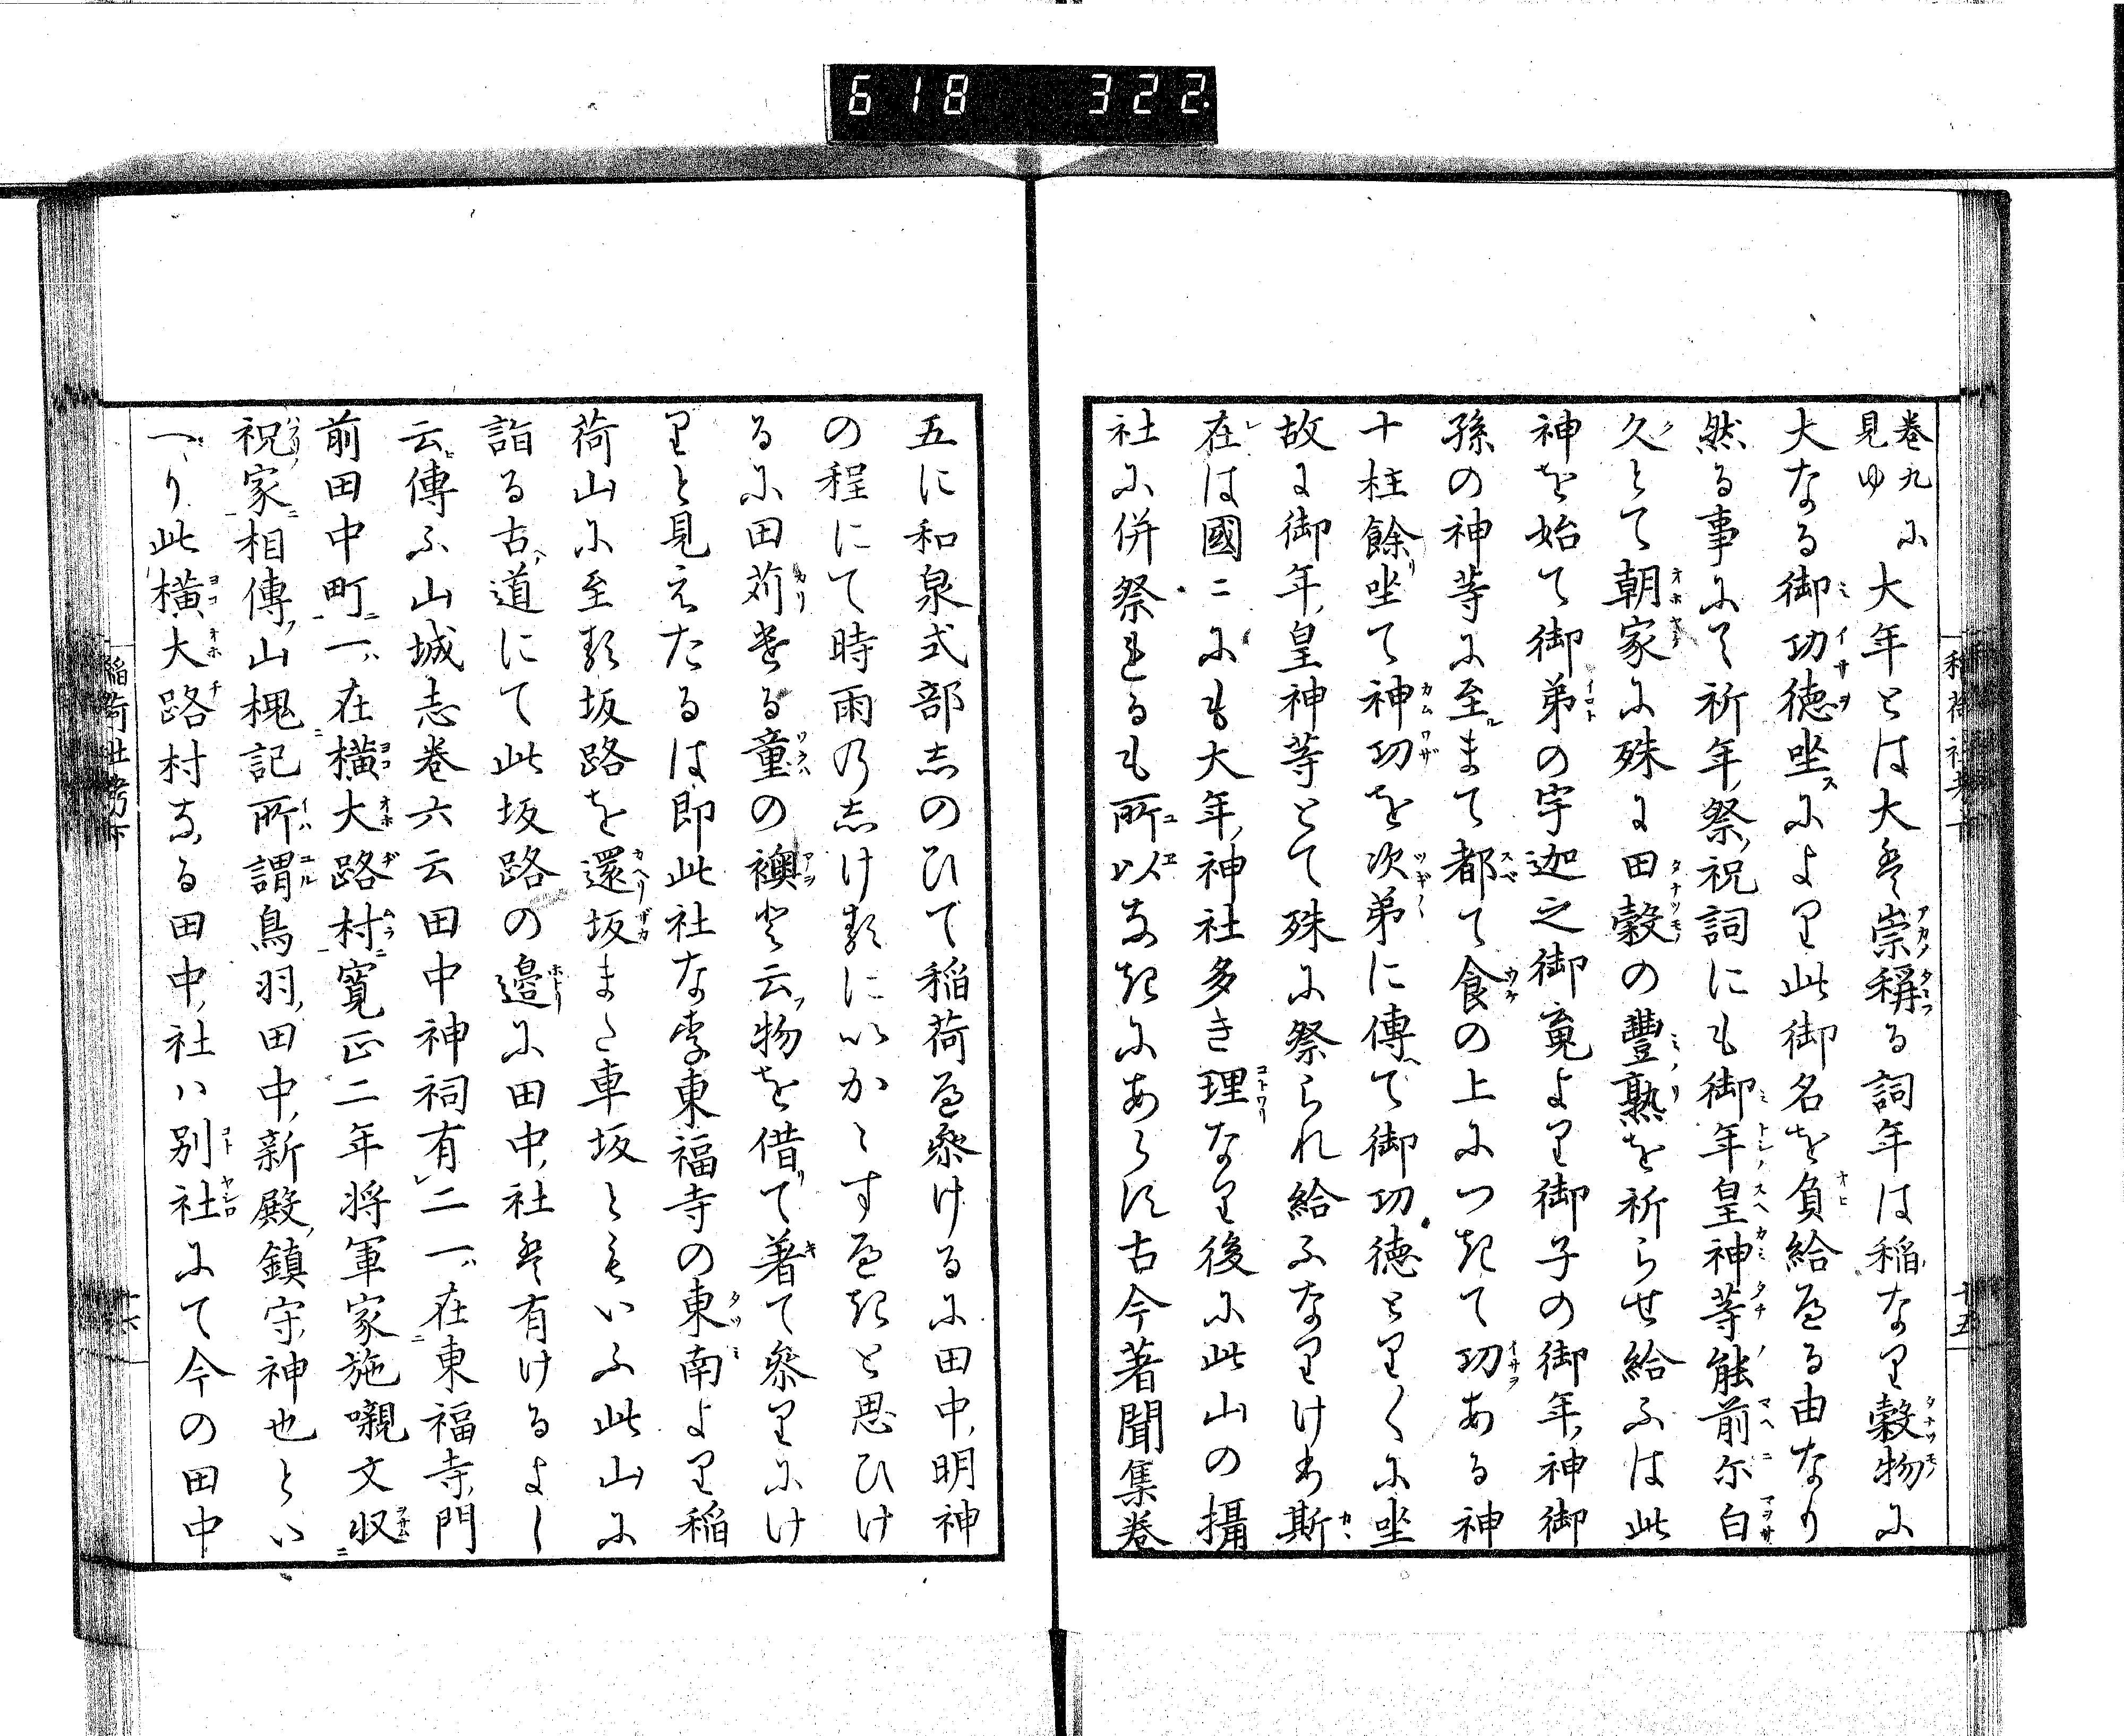 618 322
稲荷社考下
十五
巻九
見ゆ
に大年とは大は崇稱る詞年は稲なり穀物に
大なる御功徳坐により此御名を負給へる由なり
然る事にて祈年祭祝詞にも御年皇神等能前尓白
久とて朝家に殊に田穀の豊熟を祈らせ給ふは此
神を始て御弟の宇迦之御䰟より御子の御年神御
孫の神等に至まて都て食の上につきて功ある神
十柱餘坐て神功を次弟に傳て御功徳とり〱に坐
故に御年皇神等とて殊に祭られ給ふなりけり斯
在は國〻にも大年神社多き理なり後に此山の攝
社に併祭れるも所以なきにあらす古今著聞集巻
五に和泉式部志のひて稲荷へ参けるに田中明神
の程にて時雨の志けるにいかゝすへきと思ひけ
るに田苅ける童の襖と云物を借て著て参りにけ
りと見えたるは即此社なり東福寺の東南より稲
荷山に至る坂路を還坂また車坂ともいふ此山に
詣る古道にて此坂路の邊に田中社は有けるよし
云傳ふ山城志巻六云田中神祠有二一在東福寺門
前田中町一在横大路村寛正二年将軍家施嚫文収
祝家相傳山槐記所謂鳥羽田中新殿鎮守神也とい
へり此横大路村なる田中社ハ別社にて今の田中
稲荷社考下
十六